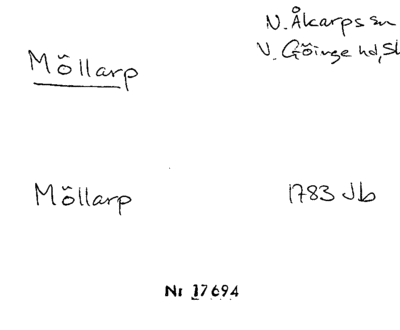 N. Åkarps sn
Möllarp
V. Göinge hd, Sk
Möllarp
1783 Jb
Nr 17694